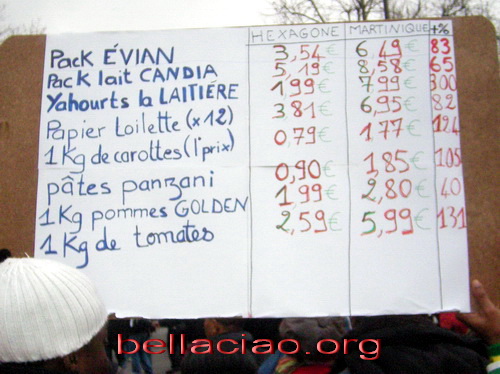 HEXAGONE MARTINIQUE +%
Pack ÉVIAN 3,54€ 6,49€ 83
Pack lait CANDIA 5,19€ 8,58€ 65
Yahourts la LAITIÈRE 1,99€ 7,99€ 300
Papier toilette (x12) 3,81€ 6,95€ 82
1Kg de carottes (1er prix) 0,79€ 1,77€ 124
pâtes panzani 0,90€ 1,85€ 105
1Kg pommes GOLDEN 1,99€ 2,80€ 40
1Kg de tomates 2,59€ 5,99€ 131
bellaciao.org